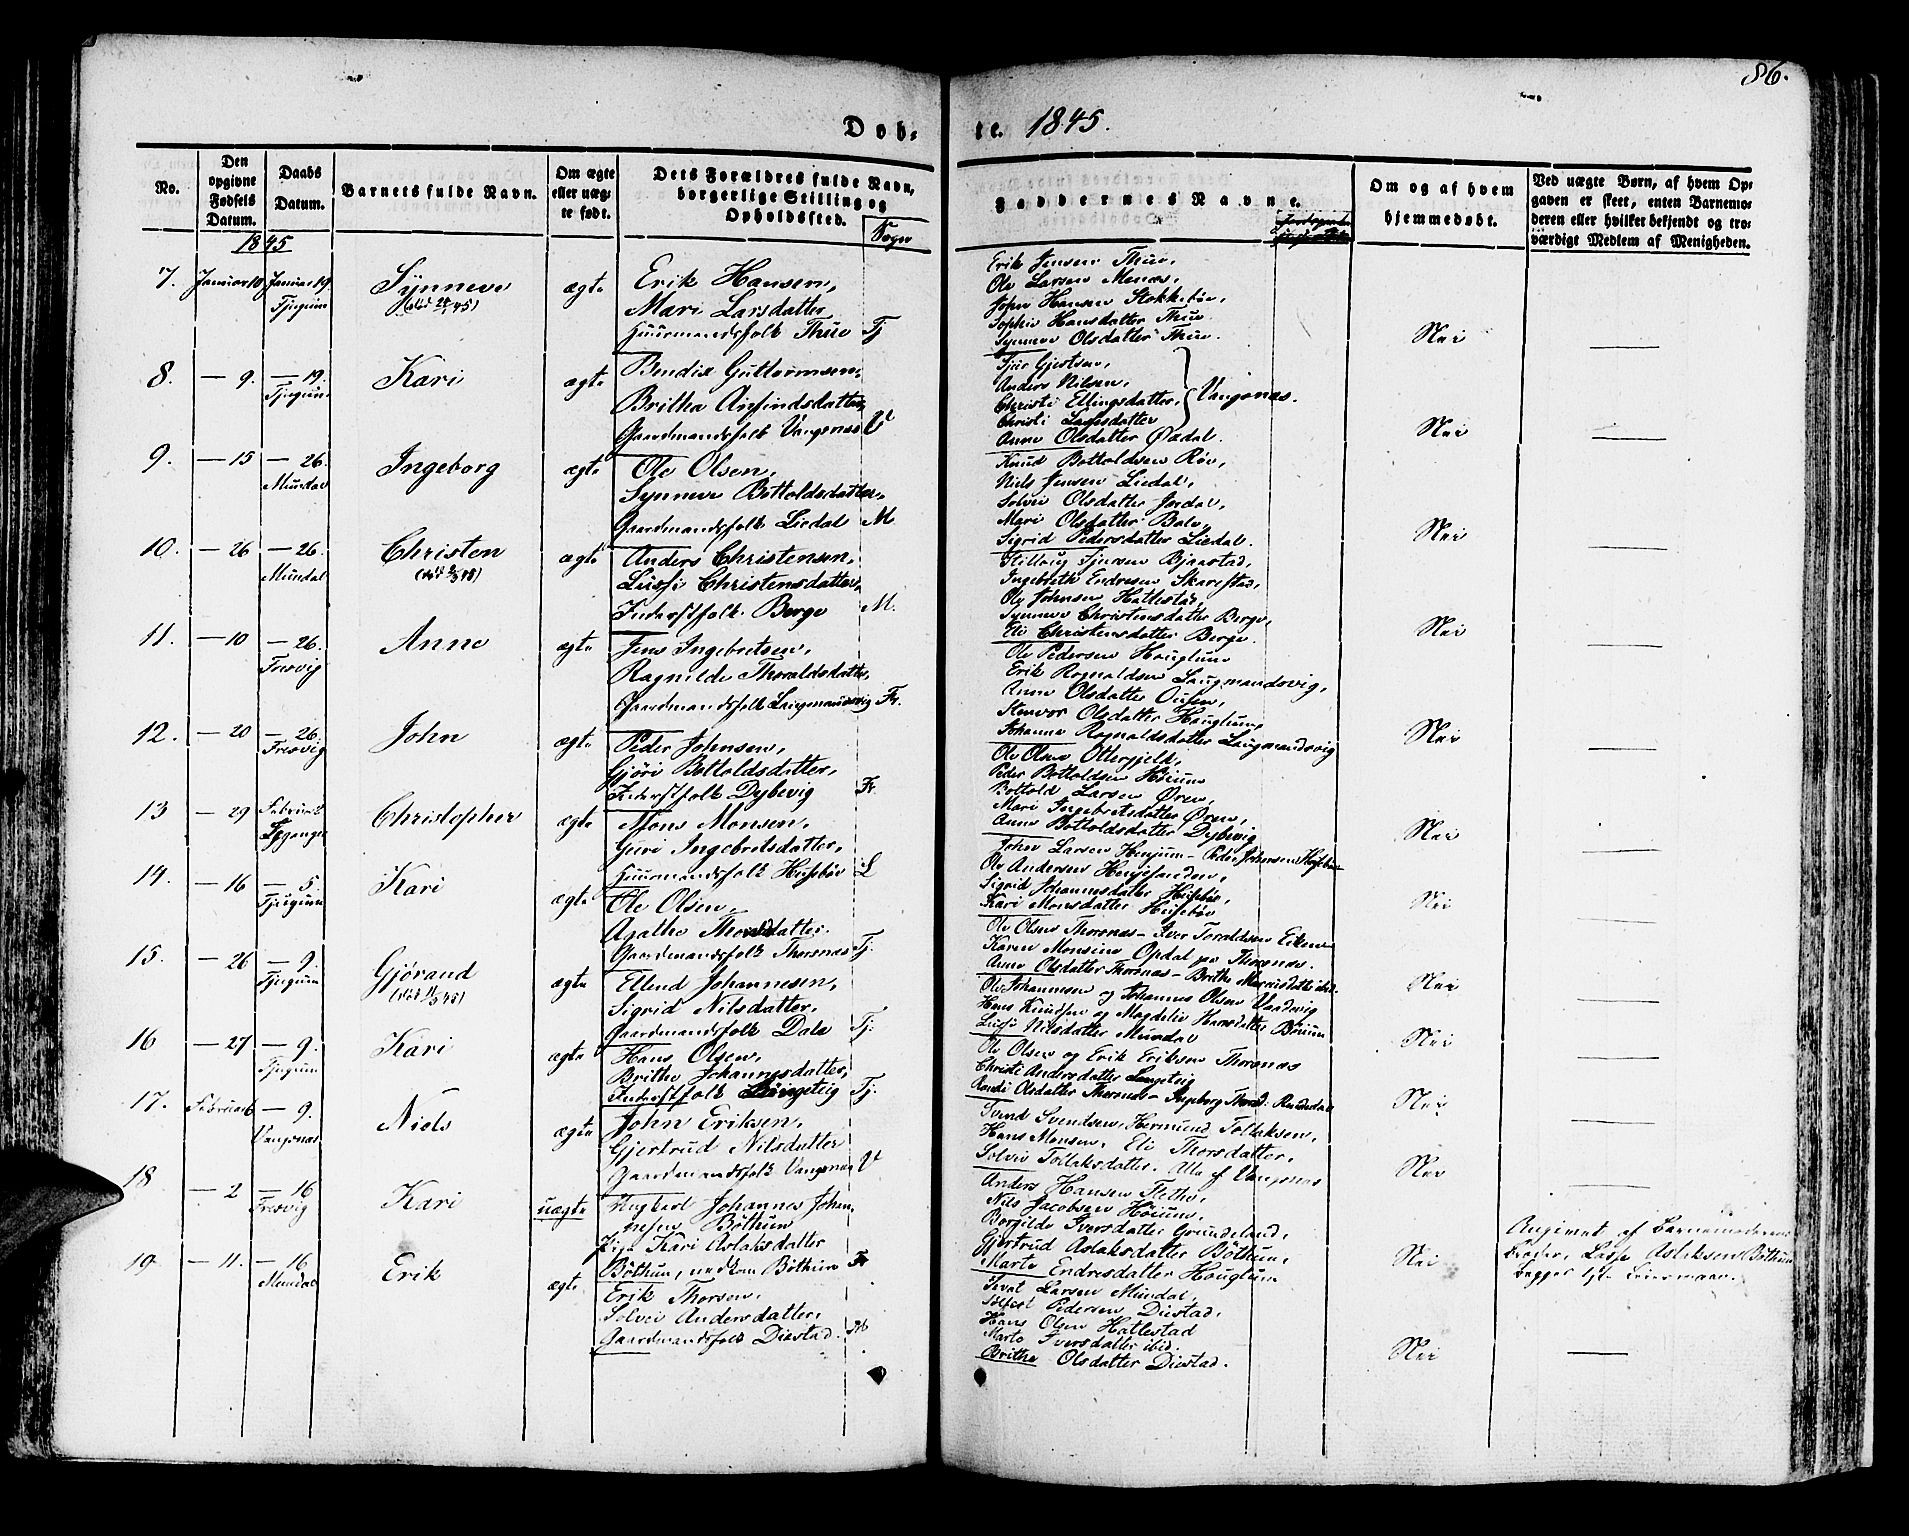 86.
Døb-
te. 1845.
No.
Den opgivne Fødsels Datum.
Daabs Datum.
Barnets fulde Navn.
Om ægte eller uæg-te født.
Dets Forældres fulde Navn, borgerlige Stilling og Opholdssted.
Sogn
Faddernes Navne.
Om og af hvem hjemmedøbt.
Ved uægte Børn, af hvem Op-gaven er skeet, enten Barnemo-deren eller hvilket bekjendt og tro-værdigt Medlem af Menigheden.
1845
7. Januar 10 Januar 19 Tjugum
Synneve
ægte
Erik Hansen,
Mari Larsdatter
Huurmandsfolk Thue Tj
Erik Jensen Thue,
Ole Larsen Menæs,
John Hansen Stokkebøe,
Sophie Hansdatter Thue.
Synneve Olsdatter Thue.
Nei
8. — 9. — 19. Tjugum
Kari
ægte
Bendix Guttormsen,
Britha Anfindsdatter,
Gaardmandsfolk Vangsnæs V
Gjertsen,
Anders Nilsen,
Christi Ellingsdatter, Vangsnæs.
Christi Larsdatter
Anne Olsdatter Ødal.
Nei
9. — 15 — 26. Mundal
Ingeborg
ægte
Ole Olsen,
Synneve Botholdsdatter,
Gaardmandsfolk Liedal M.
Knud Botholdsen Røe,
Niels Jensen Liedal,
Solvei Olsdatter Jordal,
Mari Olsdatter Bale,
Sigrid Pedersdatter Liedal.
Nei
10. — 26 — 26. Mundal
Christen
ægte
Anders Christensen,
Lussi Christensdatter,
Inderstfolk Berge M.
Bjaastad,
Ingebreth Endresen Skarestad,
Ole Johnsen Hatlestad,
Synneve Christensdatter Berge,
Eli Christensdatter Berge.
Nei
11. — 10 — 26. Fresvig
Anne
ægte
Jens Ingebretsen,
Ragnilde Thoraldsdatter,
Gaardmandsfolk Laugmandsvig Fr.
Ole Pedersen Houglum
Erik Rognaldsen Laugmandsvig,
Anne Olsdatter
Stenvor Olsdatter Houglum,
Johanne Rognaldsdatter Laugmandsvig
Nei
12. — 20 — 26 Fresvig
John
ægte
Peder Johnsen,
Gjøri Botholdsdatter,
Inderstfolk Dybevig Fr.
Ole Olsen Ottergjeld,
Peder Botholdsen Høium
Bothold Larsen Øren,
Mari Ingebretsdatter Øren,
Anne Botholdsdatter Dybevig
Nei
13 — 29 Februar 2
Christopher
ægte
Mons Monsen,
Guri Ingebretsdatter,
Huurmandsfolk Husebøe L
John Larsen Henjum - Peder Johansen Husebøe
Ole Andersen Henjesanden,
Sigrid Johannesdatter Husebøe,
Kari Monsdatter Husebøe
Nei
14. — 16 — 5. Tjugum
Kari
ægte
Ole Olsen,
Agathe Thorsdatter,
Gaardmandsfolk Thorsnæs Tj.
Ole Olsen Thorsnæs - Iver Toraldsen Eikene
Karen Monsine Opdal paa Thorsnæs.
Anne Olsdatter Thorsnæs - Brithe ibid.
Nei
15. — 26 — 9. Tjugum
Gjørand
ægte
Ellend Johannesen,
Sigrid Nilsdatter,
Gaardmandsfolk Dale Tj:
Ole Johannesen og Johannes Olsen
Hans Knudsen og Magdeli Hansdatter
Nilsdatter Mundal
Nei
16 — 27 — 9. Tjugum
Kari
ægte
Hans Olsen,
Brithe Johannesdatter,
Inderstfolk Tj.
Ole Olsen og Erik Eriksen Thorsnæs
Christi Andersdatter Længeteig
Randi Olsdatter Thorsnæs - Ingeborg
Nei
17. Februar 6 — 9. Vangsnæs
Niels
ægte
John Eriksen,
Gjertrud Nilsdatter
Gaardmandsfolk Vangsnæs V
Svend Svendsen, Hermund Tollaksen,
Hans Monsen, Eli Thorsdatter,
Solvei Tollaksdatter. Alle af Vangsnæs
Nei
18 — 2 — 16 Fresvig
Kari
uægte
Ungkarl Johannes Johan-
nesen Bøthun
Pige Kari Aslaksdatter
Bøthun, Bøthun Fr
Anders Hansen Flethe,
Nils Jacobsen Høium,
Borgilde Iversdatter Grundeland,
Gjertrud Aslaksdatter Bøthun,
Marte Endresdatter Houglum
Nei
Angivet af Barnemoderens
Broder, Lasse Aslaksen Bøthun
begges 1ste Leiermaal.
19. — 11. — 16 Mundal
Erik
ægte
Erik Thorsen,
Solvei Andersdatter,
Gaardmandsfolk Distad. M
Larsen Mundal,
Pedersen Distad,
Hans Olsen Hatlestad
Marte Iversdatter ibid.
Brithe Olsdatter Distad.
Nei